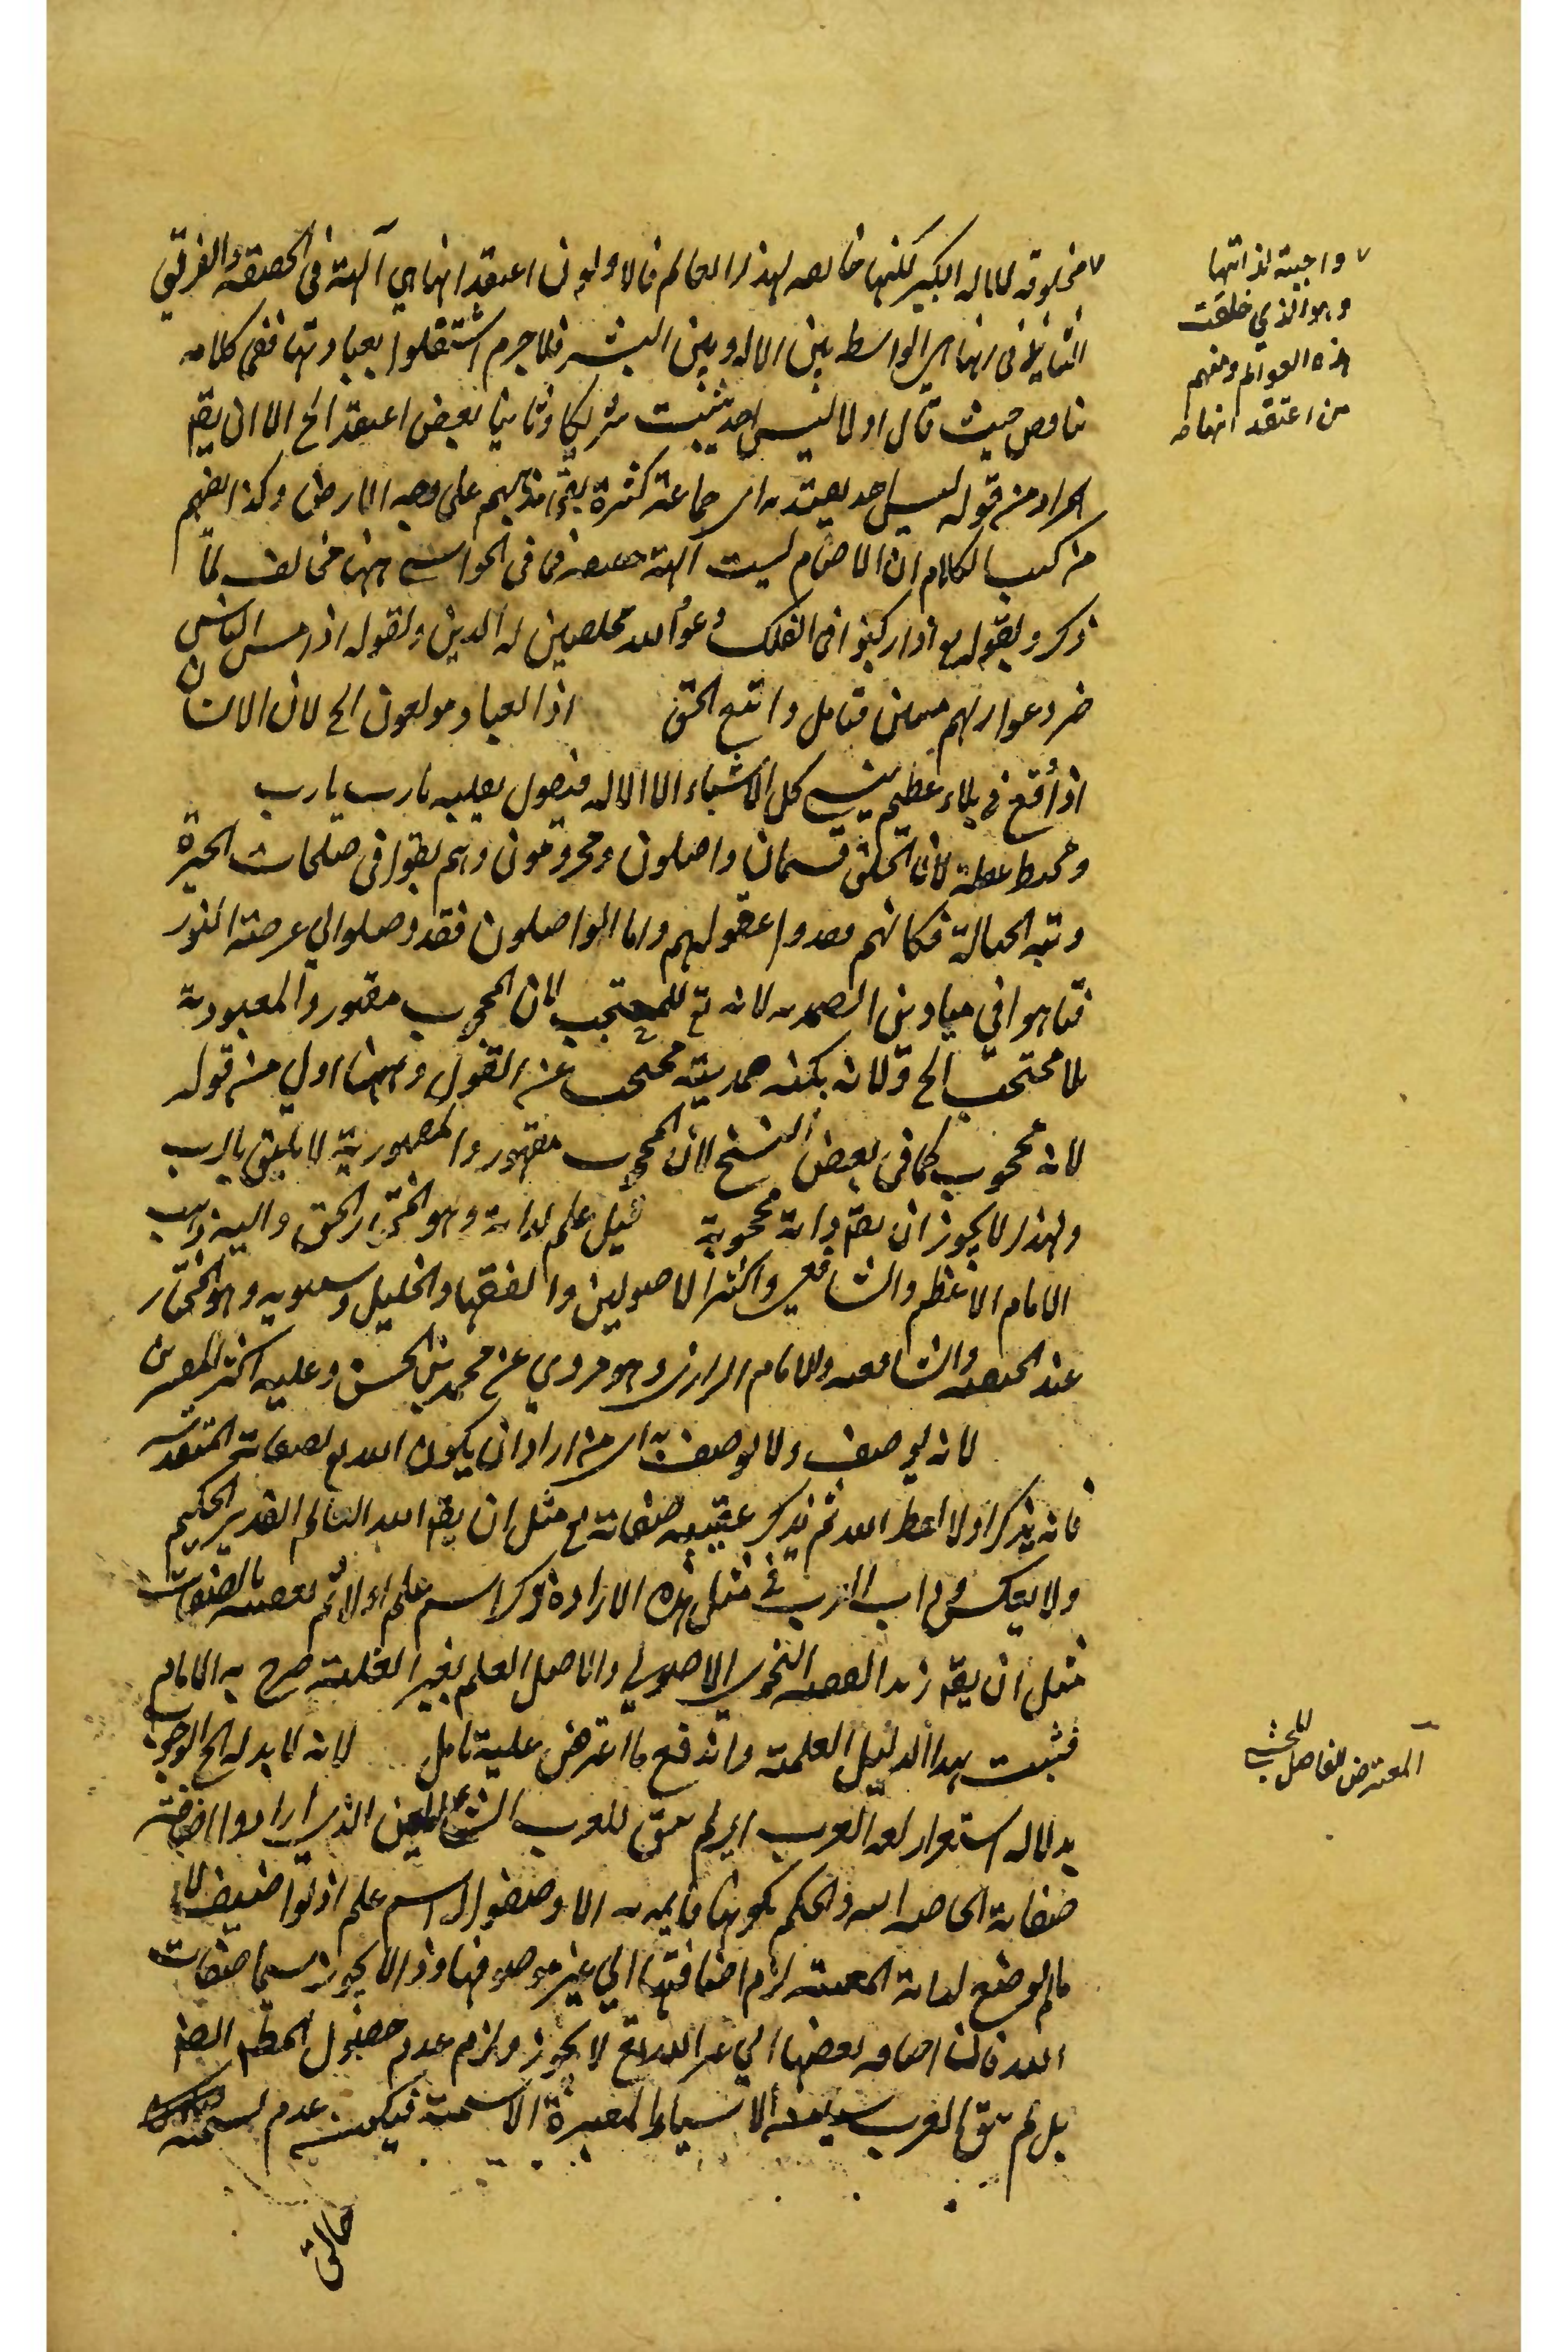 مخلوقه للاله الكبير لكنها خالصه لهذا العالم فالاولون اعتقد انها هي آلهة في الحقيقة والفريق
الثاني انها هي الواسط بين الاله وبين البشر فلا جرم اشتغلوا بعبادتها ففي كلامه
تناقض حيث قال اولا ليس احد يثبت شريكا وثانيا بعض اعتقد الخ الا ان يقم
المراد من قوله ليس احد يعتد به اى جماعة كثيرة بقي مذهبهم على وجه الارض وكذا يفهم
من كسب الكلام ان الاصنام ليست آلهة حقيقة فما في الحواشي ههنا مخالف لما
ذكر ولقوله تع اذا ركبوا في الفلك دعوا الله مخلصين له الدين ولقوله اذا مس الناس
ضر دعوا ربهم منيبين فتامل واتبع الحق اذ العباد مولعون الخ لان الانسان
اذا وقع في بلاء عظيم ينسى كل الاشياء الا الاله فيقول بقلبه يا رب يا رب
لان الخلق قسمان واصلون ومحرومون وهم بقوا في ظلمات الحيرة
وتيه الجهالة فكانهم فقدوا عقولهم واما الواصلون فقد وصلوا الى عرصة النور
فتاهوا في ميادين الصمدية لانه تع للمحتجب لان المحجوب مقهور والمعبودية
بلا محتجب الخ ولانه بكنه صمديته محتجب عن العقول وههنا اولى من قوله
لانه محجوب كما في بعض النسخ لان المحجوب مقهور والمقهورية لا يليق بالرب
ولهذا لا يجوز ان يقم ذاته محجوبة قيل علم لذاته وهو المختار الحق واليه ذهب
الامام الاعظم والشافعي واكثر الاصوليين والفقهاء والخليل وسيبويه وهو المختار
عند الحنفيه والشافعيه والامام الرازى وهو مروي عن محمد بن الحسن وعليه اكثر المعتبرين
لانه يوصف ولا يوصف به اى من اراد ان يكون الله تع بصفاته المتعددة
فانه يذكر اولا لفظ الله ثم يذكر عقيبه صفاته تع مثل ان يقم الله العالم القدير الحكيم
ولا يعكس وداب العرب في مثل هذه الارادة ذكر اسم علم اولا ثم تعقبه بالصفات
مثل ان يقم زيد الفقيه النحوي الاصولي والاصل العلم بغير الغلبة صرح به الامام
فثبت بهذا الدليل العلمية واندفع ما اعترض عليه تامل لانه لا بد له الخ الوجوب
بدلالة استقراء لغة العرب اى لم يبق للعرب الذى ارادوا اضافة
صفاته الخاصة اليه والحكم بكونها قايمة به الا وضعوا له اسم علم اذ لو اضيف لا
ما لم يوضع لذاته المعينه لزم اضافتها الى غير موصوفها وذا لا يجوز سيما صفات
الله فان اضافة بعضها الى غير الله تع لا يجوز ولزم عدم حصول
بل لم يبق العرب الاشياء المعتبرة الا سمته فيكون عدم تسمية
خالق
واجبية لذاتها
وهو الذي خلقت
هذه العوالم ومنهم
من اعتقد انها
المعترض الفاضل المحشي